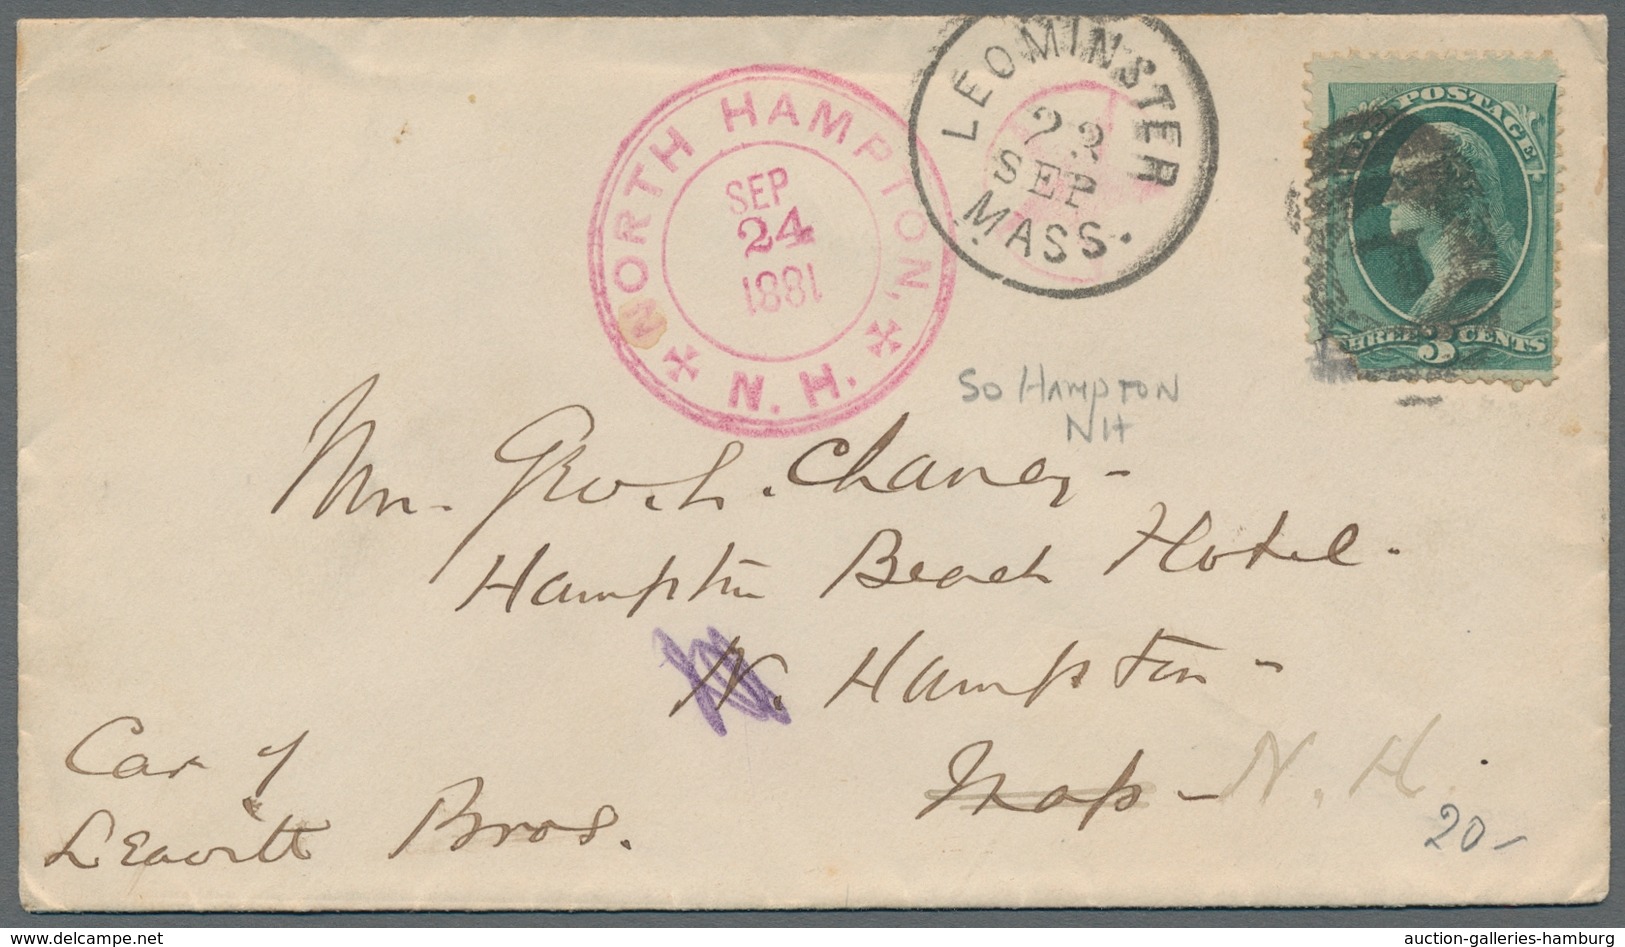 NORTH HAMPTON, N.H.
SEP
24
1881
LEOMINSTER
SEP
MASS.
POSTAGE
THREE 3 CENTS
So HAMPTON
NH
Mr. Geo. L. Chaney -
Hampton Beach Hotel.
N. Hampton -
Mass - N. H.
Car of
Leavitt Bros.
20-
www.delcampe.net
auction-galleries-hamburg